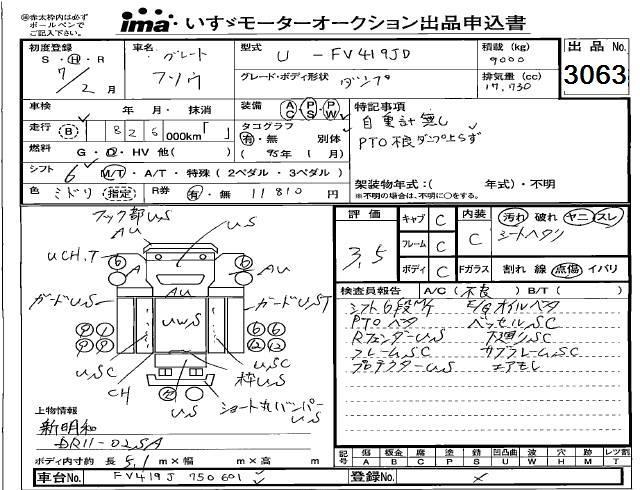 ※赤太枠内は必ず
ボールペンで
ご記入下さい。
ima いすゞモーターオークション出品申込書
初度登録 S・H・R 7/2月
車名 グレート フソウ
型式 U - FV419JD
グレード・ボディ形状 ダンプ
積載 (kg) 9000
排気量 (cc) 17,730
出品No. 3063
車検 年 月・抹消
走行 (B) 8 2 6 000km「 」
燃料 G・D・HV 他( )
シフト 6 M/T・A/T・特殊 (2ペダル・3ペダル)
色 ミドリ (指定) R券 有・無 11810 円
装備 AC・PS・PW
タコグラフ 有・無 別体
(95年 1月)
特記事項
自重計無し
PTO不良ダンプ上らず
架装物年式:( 年式)・不明
※不明の場合は、不明に○をする。
フック部U.S
AU
U.S
UCH.T
6 A 6
AU
AU
ガードU.S
UW.S
ガードU.ST
U.SC
CH
枠U.S
U.S
ショート丸バンパー
U.S
評価 3.5
キャブ C
フレーム C
ボディ C
内装 C
汚れ 破れ ヤニ スレ
シートヘタリ
Fガラス 割れ 線 点傷 イバリ
検査員報告 A/C (不良) B/T ( )
シフト6段M/T E/GオイルベタPTOベタ ベッセルU.SC
RフェンダーU.S 下廻りSC
フレームU.SC サブフレームSC
プロテクターU.S エアモレ
上物情報
新明和
DR11-02SA
ボディ内寸約 長 5.1 m×幅 m×高 m
記号 傷A 板金B 腐C 塗P 錆S 凹凸曲U 波W 穴H 跡M レツ割T
車台No. FV419J 750601
登録No.